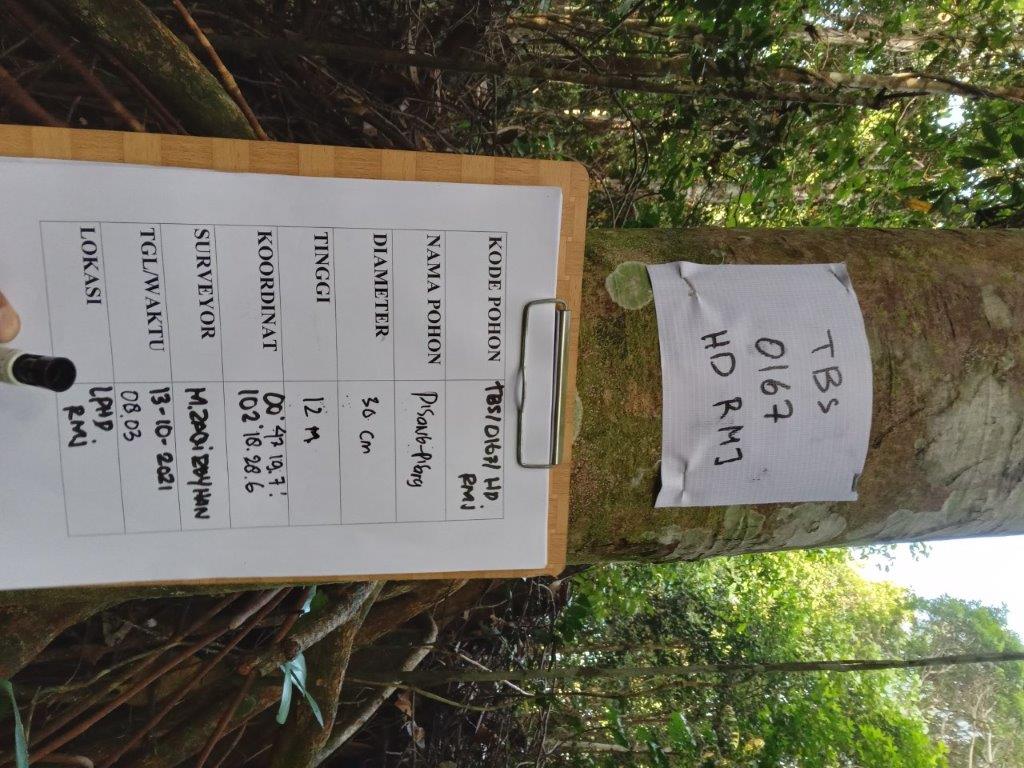 TBS
0167
HD RMJ
KODE POHON TBS/0167/ HD.
RMJ
NAMA POHON Pisang-Pisang
DIAMETER 30 cm
TINGGI 12 M
KOORDINAT 00° 47 19.7!
102° 18. 28.6
SURVEYOR M. ZAQI REYHAN
TGL/WAKTU 13-10-2021
08.03
LOKASI LPHD.
RMJ